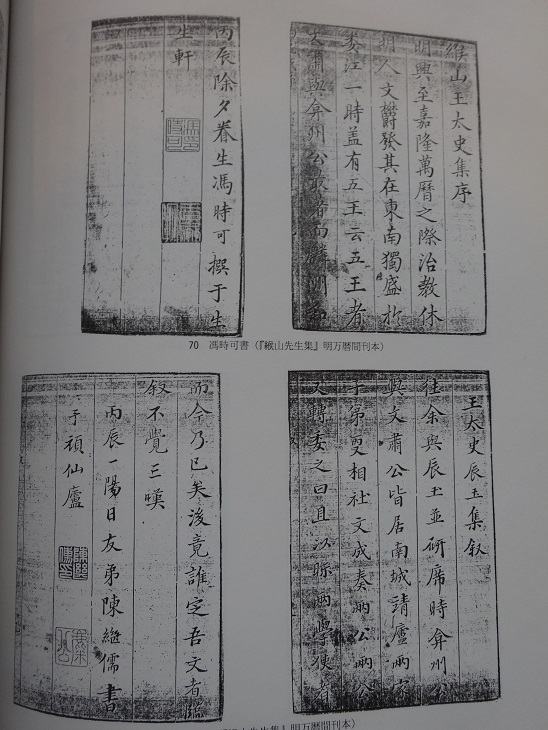 緱山王太史集序
明興至嘉隆萬曆之際治教休
明人文欝發其在東南獨盛於
婁江一時盖有五王云五王者
文肅與弇州公最著而麟洲
丙辰除夕眷生馮時可撰于生
生軒
70　馮時可書（『緱山先生集』明万暦間刊本）
王太史辰玉集叙
往余與辰玉並研席時弇州公
與文肅公皆居南城靖廬兩家
子弟更相社文成奏兩公兩公
又轉委之曰且以眎兩學使者
而今乃已矣後竟誰定吾文者臨
叙不覺三嘆
丙辰一陽日友弟陳繼儒書
于頑仙廬
先生集』明万暦間刊本）